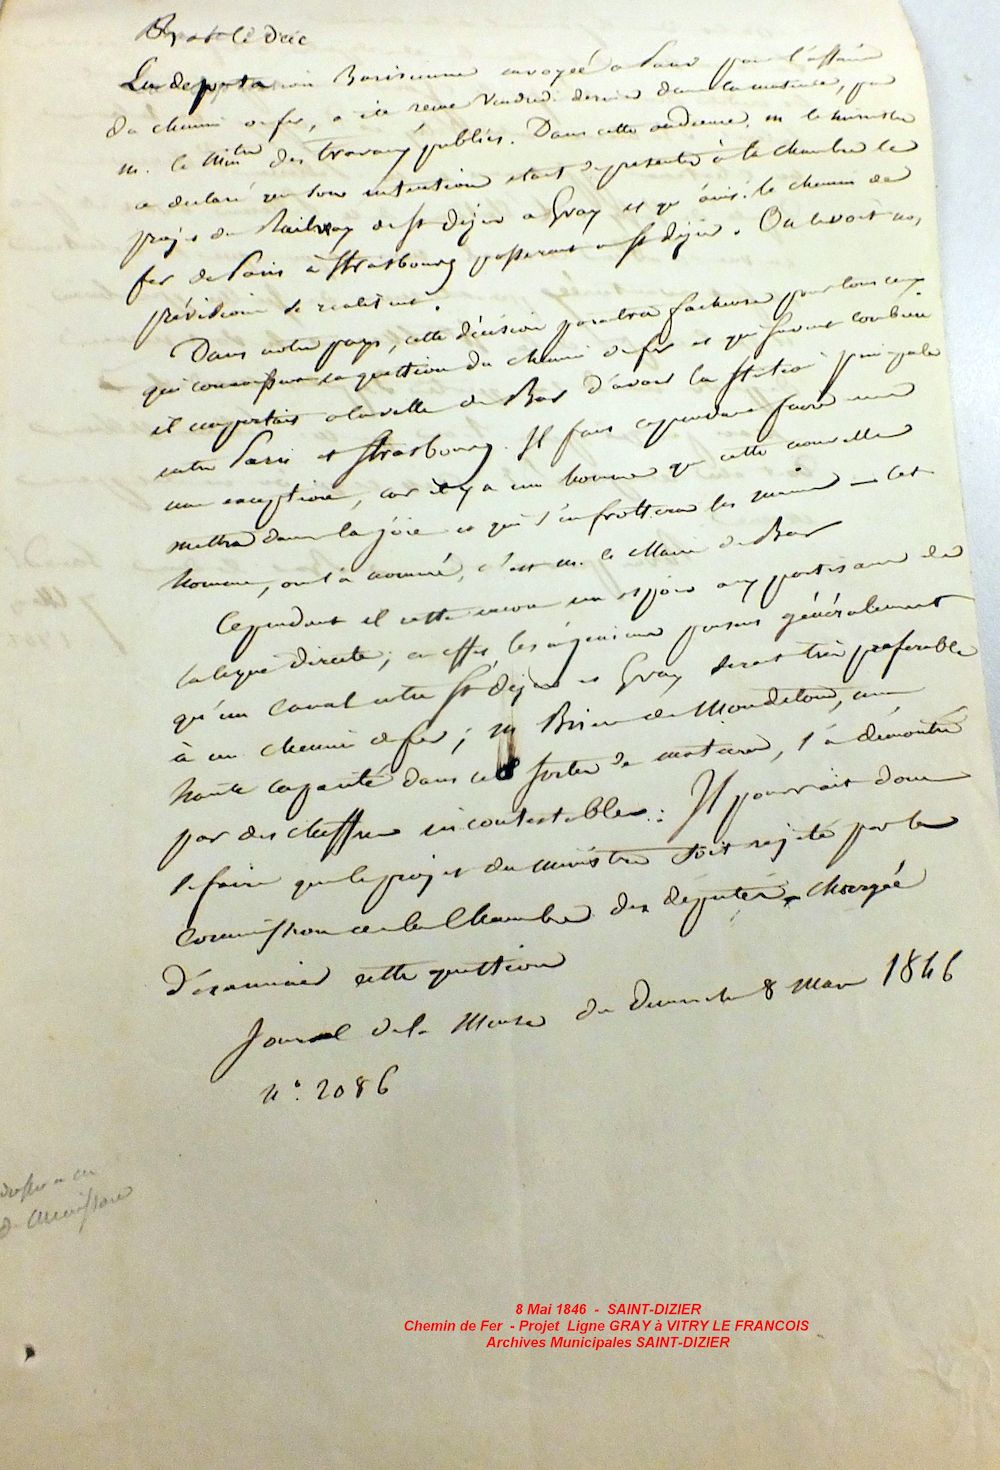 Bar-le-Duc
La députation Barisienne envoyée à Paris pour l'affaire
du chemin de fer, a été reçue vendredi dernier dans la matinée, par
M. le Mintre des travaux publics. Dans cette audience, M. le ministre
a déclaré que son intention était de présenter à la Chambre le
projet du Railway de St Dizier à Gray et qu'ainsi le chemin de
fer de Paris à Strasbourg passerait à St Dizier. On le voit nos
prévisions se réalisent.
Dans notre pays, cette décision paraîtra fâcheuse pour tous ceux
qui connaissent la question du chemin de fer et qui savent combien
il importait à la ville de Bar d'avoir la station principale
entre Paris et Strasbourg. Il faut cependant faire une
exception, car il y a un homme que cette nouvelle
mettra dans la joie et qui s'en frottera les mains — cet
homme, on l'a nommé, c'est M. le Maire de Bar
Cependant il reste encore un espoir aux partisans de
la ligne directe; en effet, les ingénieurs pensent généralement
qu'un Canal entre St Dizier et Gray serait très préférable
à un chemin de fer; M Brière de Mondetour, une
haute capacité dans ces sortes de matières, l'a démontré
par des chiffres incontestables: Il pourrait donc
se faire que le projet du ministre soit rejeté par la
Commission de la Chambre des députés chargée
d'examiner cette question
Journal de la Meuse du Dimanche 8 Mars 1846
n°. 2086
8 Mai 1846 - SAINT-DIZIER
Chemin de Fer - Projet Ligne GRAY à VITRY LE FRANCOIS
Archives Municipales SAINT-DIZIER